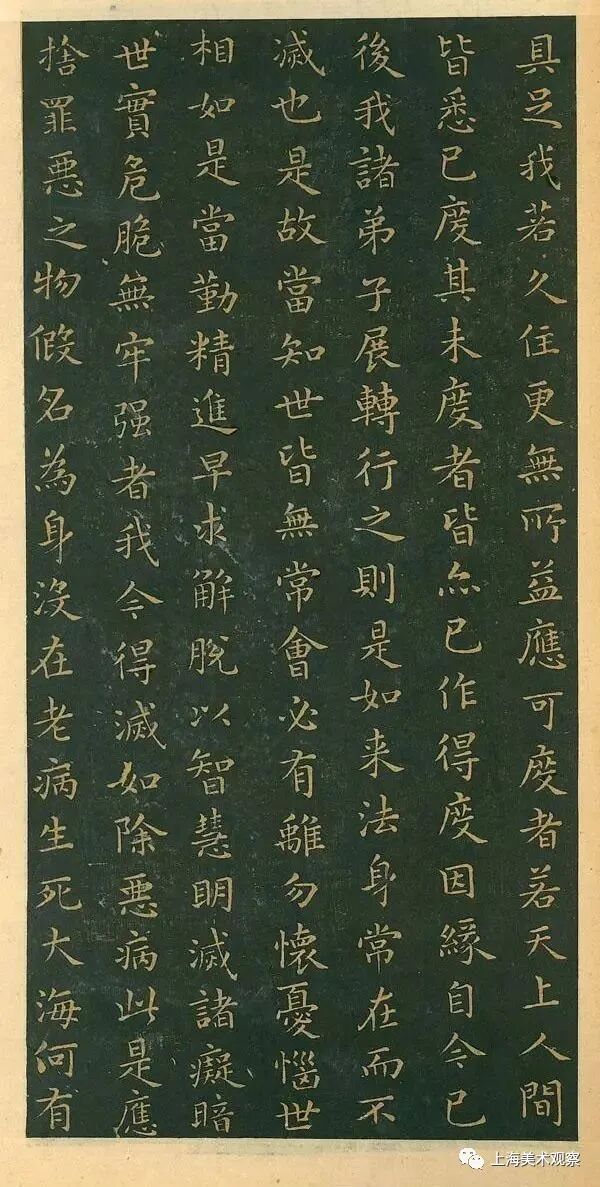 具足我若久住更無所益應可度者若天上人間
皆悉已度其未度者皆亦已作得度因緣自今已
後我諸弟子展轉行之則是如来法身常在而不
滅也是故當知世皆無常會必有離勿懷憂惱世
相如是當勤精進早求解脫以智慧明滅諸癡暗
世實危脆無牢强者我今得滅如除惡病此是應
捨罪惡之物假名為身沒在老病生死大海何有
上海美术观察